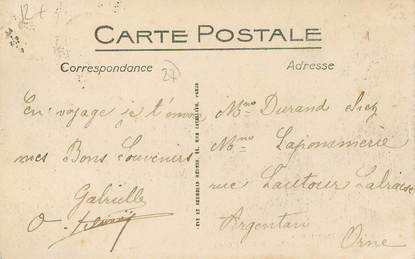 R +
CARTE POSTALE
Correspondance
27
Adresse
En voyage je t'envoie
mes Bons Souvenirs
Gabrielle
Mme Durand chez
Mme Laponmmerie
rue Lautour Labroise
Argentan
Orne